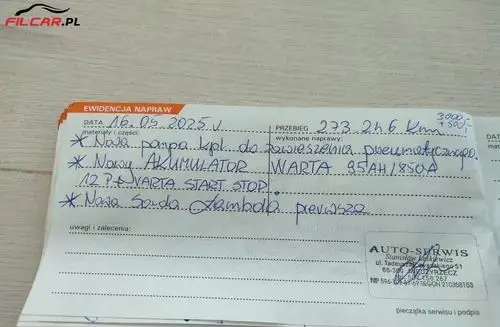 FILCAR.PL
EWIDENCJA NAPRAW
3000,-
+500,-
DATA 16.05 2025 r PRZEBIEG 273 246 Km
materiały i części: wykonane naprawy:
* Nowa pompa kpl. do zawieszenia pneumatycznego.
* Nowy AKUMULATOR WARTA 95AH/850A
12 P+ VARTA START STOP.
* Nowa Sonda Lambda pierwsza
uwagi i zalecenia:
AUTO-SERWIS
Stanisław
ul.
66-300 MIĘDZYRZECZ
pieczątka serwisu i podpis